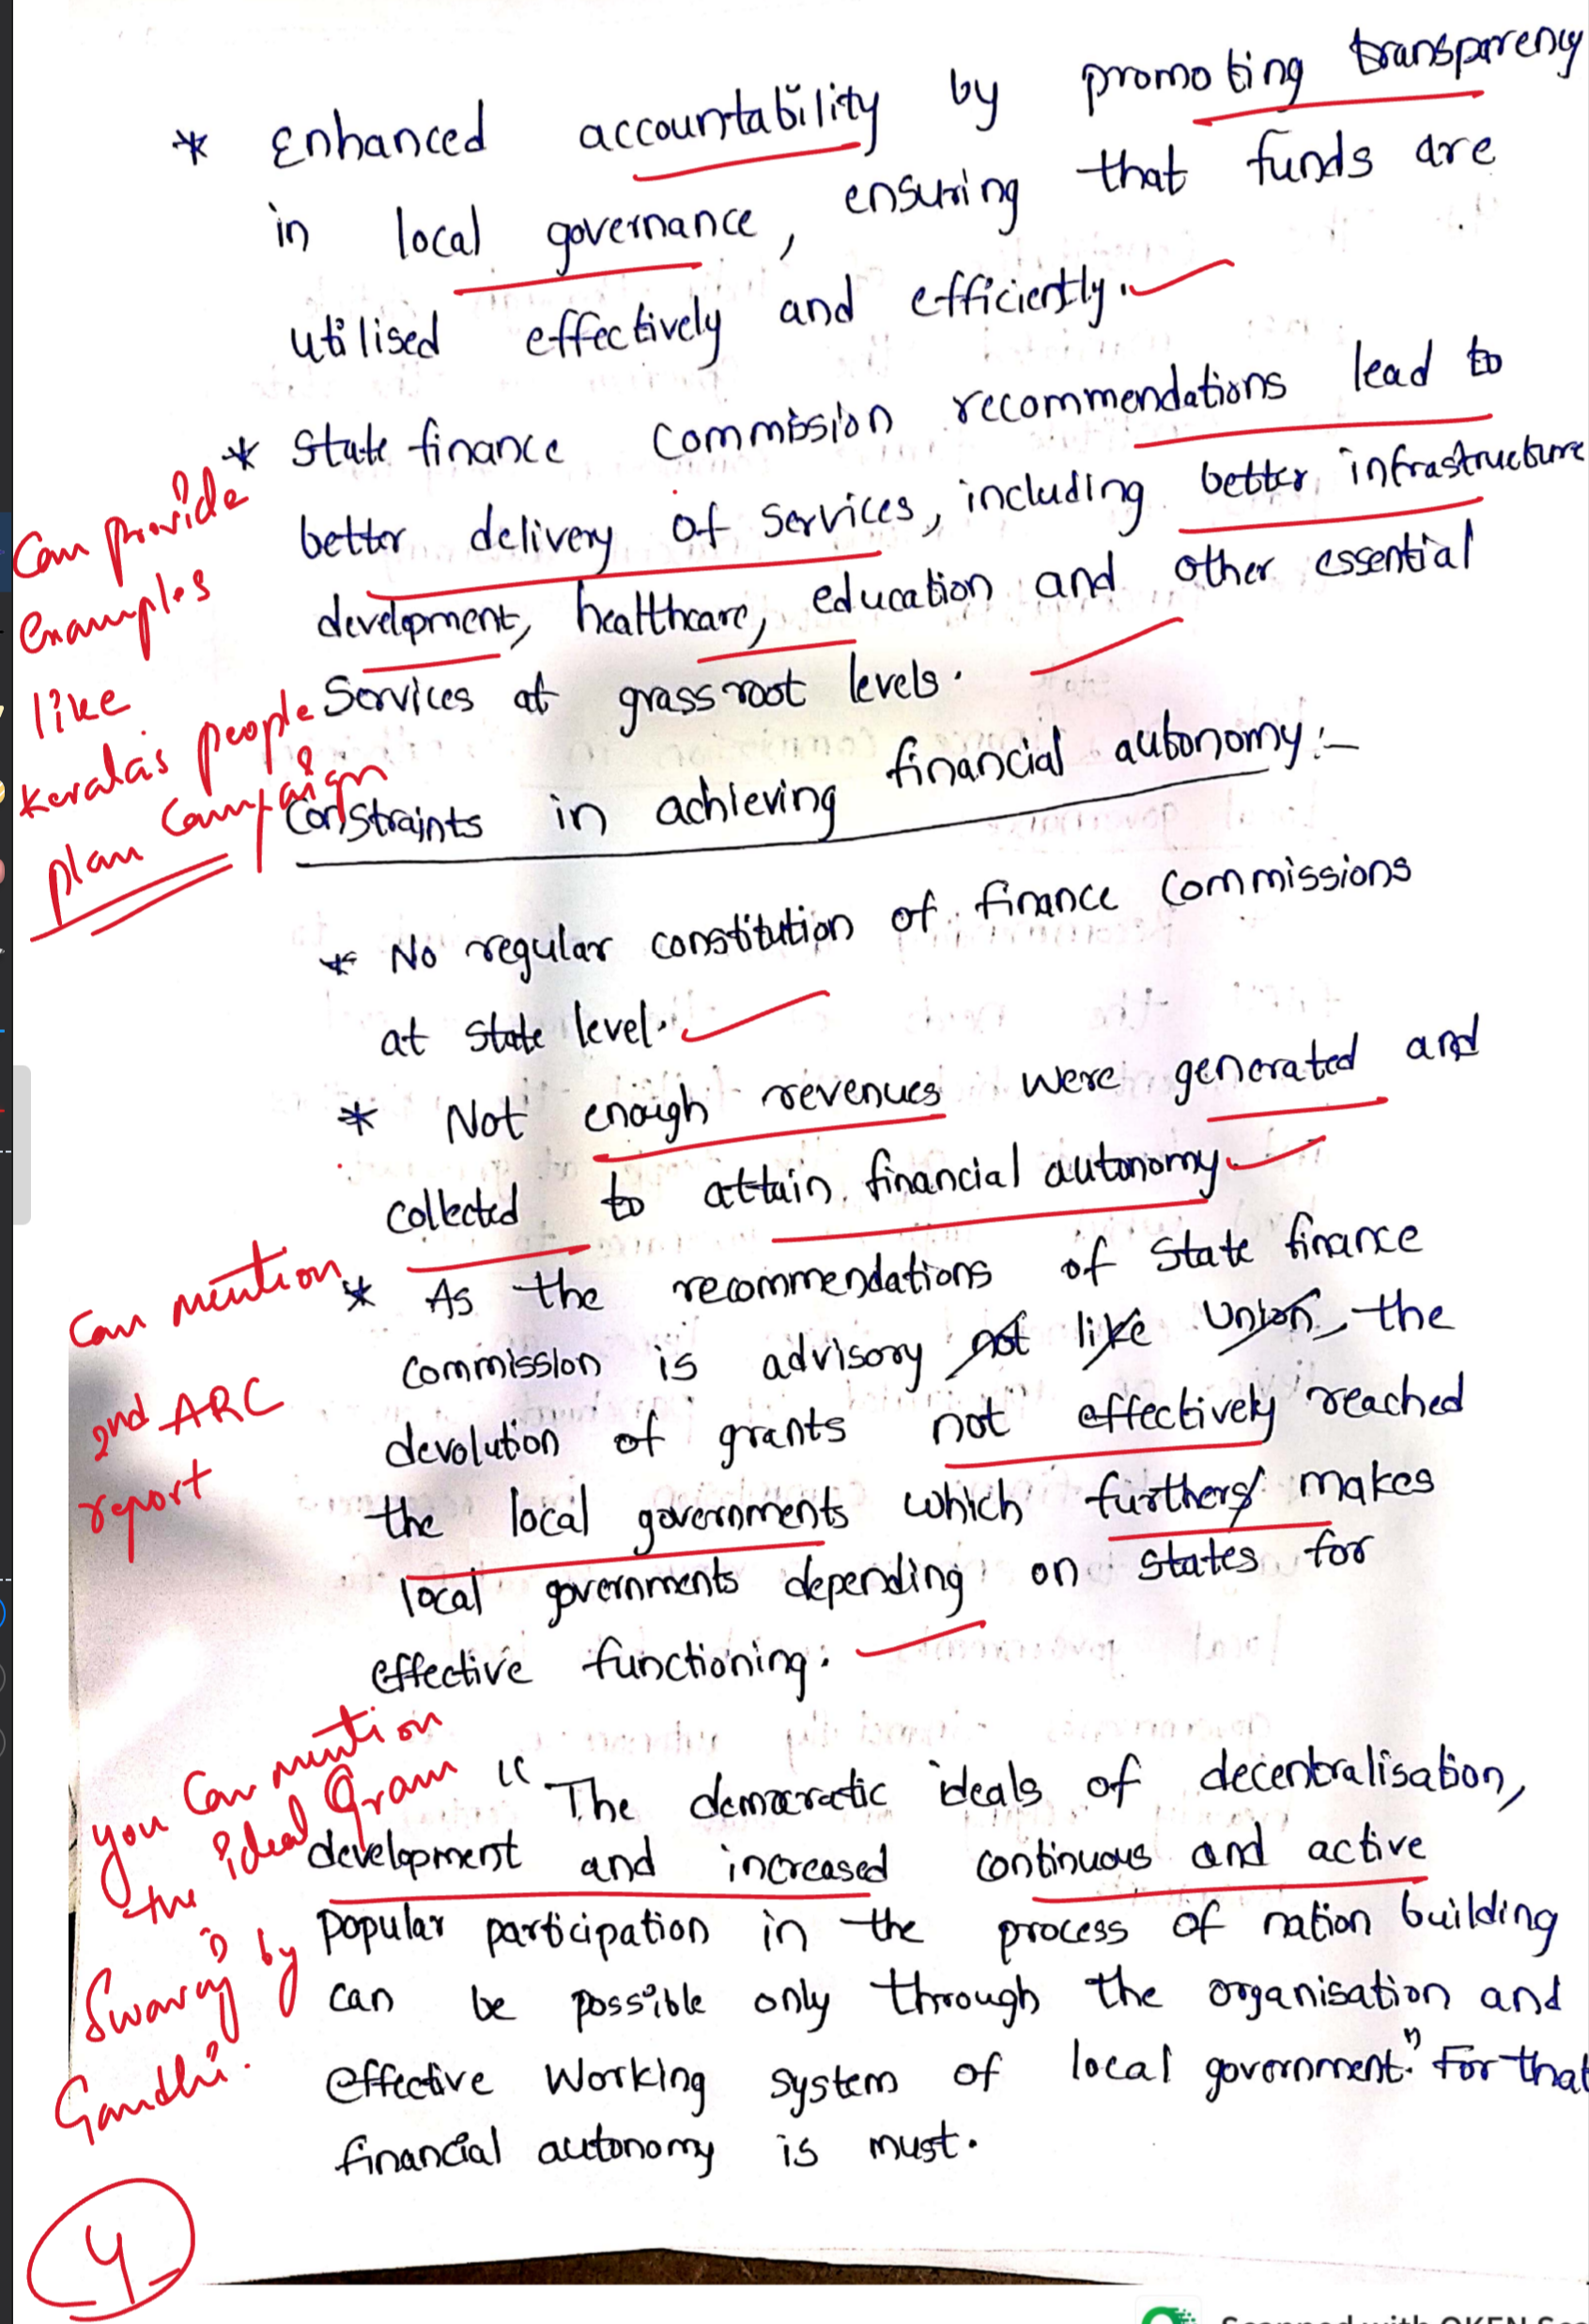 * Enhanced accountability by promoting transparency
in local governance, ensuring that funds are
utilised effectively and efficiently.
* State finance Commission recommendations lead to
better delivery of services, including better infrastructure
development, healthcare, education and other essential
Services at grassroot levels.
Can provide
Examples
like
Keralas people
plan Campaign
Constraints in achieving financial autonomy:-
* No regular constitution of finance Commissions
at state level.
* Not enough revenues were generated and
collected to attain financial autonomy.
Can mention
2nd ARC
report
* As the recommendations of State finance
Commission is advisory not like Union, the
devolution of grants not effectively reached
the local governments which further makes
local governments depending on States for
effective functioning.
you Can mention
the ideal Gram
Swaraj by
Gandhi.
"The democratic ideals of decentralisation,
development and increased continuous and active
popular participation in the process of nation building
can be possible only through the organisation and
effective working system of local government." For that
financial autonomy is must.
4